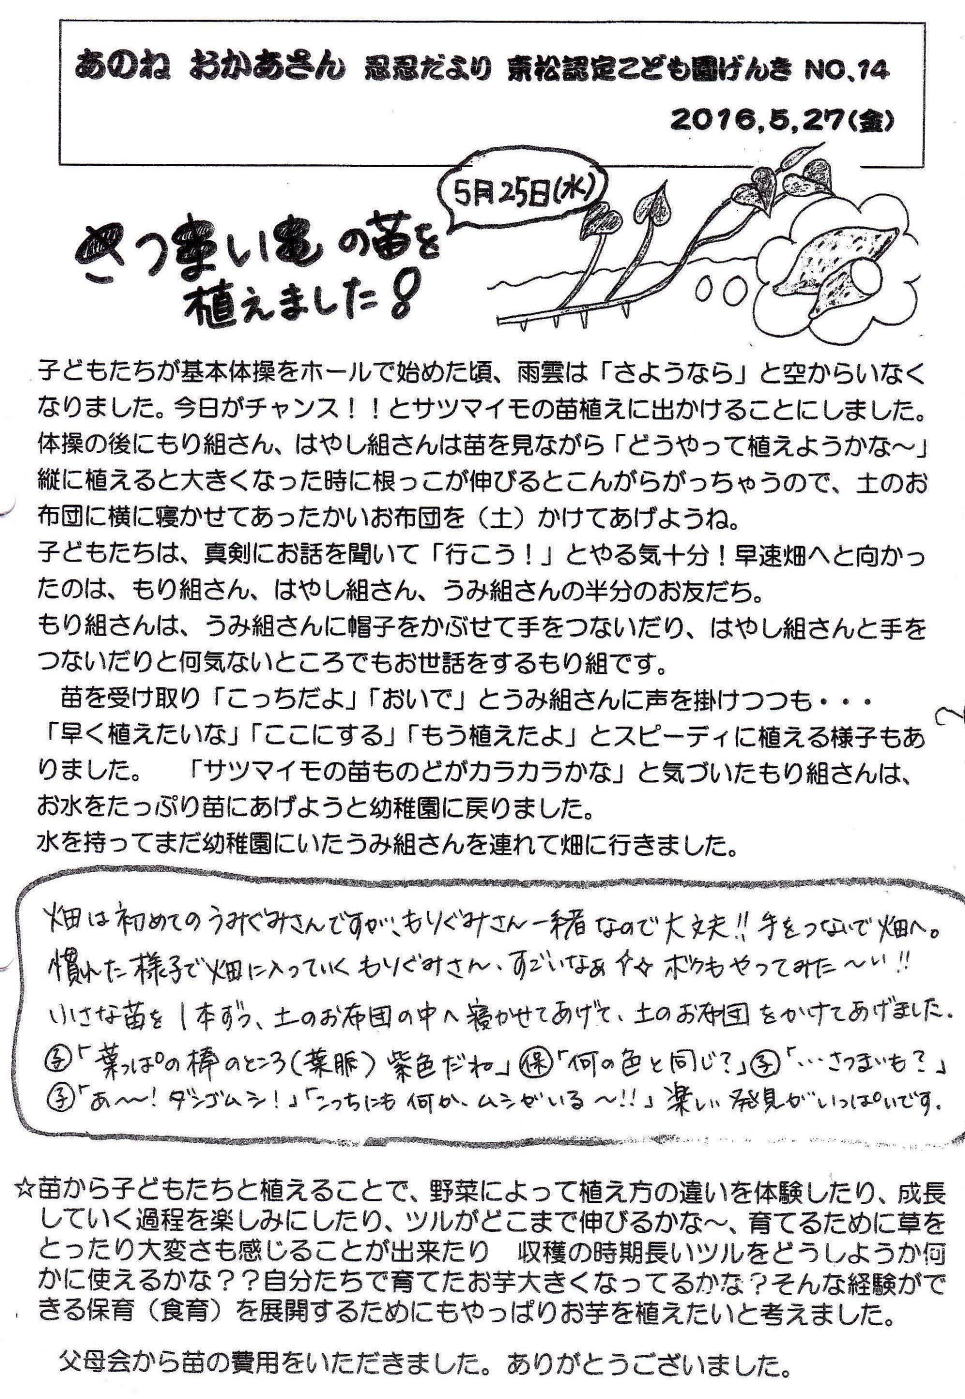 あのね おかあさん 忍忍だより 東松認定こども園げんき NO、14
2016,5,27(金)
5月25日(水)
さつまいもの苗を
植えました!
子どもたちが基本体操をホールで始めた頃、雨雲は「さようなら」と空からいなく
なりました。今日がチャンス！！とサツマイモの苗植えに出かけることにしました。
体操の後にもり組さん、はやし組さんは苗を見ながら「どうやって植えようかな～」
縦に植えると大きくなった時に根っこが伸びるとこんがらがっちゃうので、土のお
布団に横に寝かせてあったかいお布団を（土）かけてあげようね。
子どもたちは、真剣にお話を聞いて「行こう！」とやる気十分！早速畑へと向かっ
たのは、もり組さん、はやし組さん、うみ組さんの半分のお友だち。
もり組さんは、うみ組さんに帽子をかぶせて手をつないだり、はやし組さんと手を
つないだりと何気ないところでもお世話をするもり組です。
苗を受け取り「こっちだよ」「おいで」とうみ組さんに声を掛けつつも・・・
「早く植えたいな」「ここにする」「もう植えたよ」とスピーディに植える様子もあ
りました。 「サツマイモの苗ものどがカラカラかな」と気づいたもり組さんは、
お水をたっぷり苗にあげようと幼稚園に戻りました。
水を持ってまだ幼稚園にいたうみ組さんを連れて畑に行きました。
畑は初めてのうみぐみさんですが、もりぐみさん一緒なので大丈夫!! 手をつないで畑へ。
慣れた様子で畑に入っていくもりぐみさん、すごいなぁ☆☆ ボクもやってみた〜い!!
小さな苗を1本ずつ、土のお布団の中へ寝かせてあげて、土のお布団をかけてあげました.
㋙「葉っぱの棒のところ(葉脈)紫色だね」 保「何の色と同じ?」 子「‥さつまいも?」
子「あ〜〜! ダンゴムシ!」「こっちにも何か、ムシがいる〜!!」 楽しい発見がいっぱいです.
☆苗から子どもたちと植えることで、野菜によって植え方の違いを体験したり、成長
していく過程を楽しみにしたり、ツルがどこまで伸びるかな～、育てるために草を
とったり大変さも感じることが出来たり 収穫の時期長いツルをどうしようか何
かに使えるかな？？自分たちで育てたお芋大きくなってるかな？そんな経験がで
きる保育（食育）を展開するためにもやっぱりお芋を植えたいと考えました。
父母会から苗の費用をいただきました。ありがとうございました。